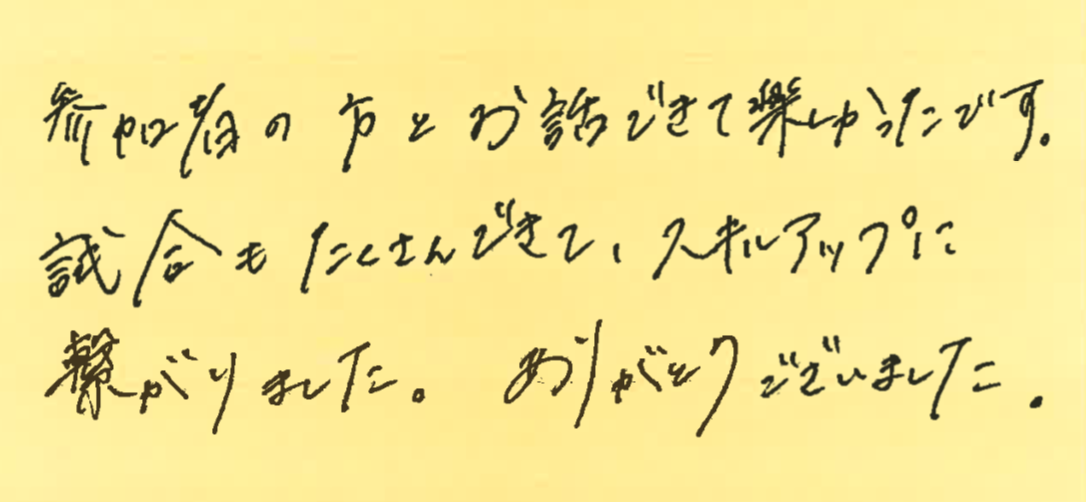 参加者の方とお話できて楽しかったです。
試合もたくさんできて、スキルアップに
繋がりました。 ありがとうございました。